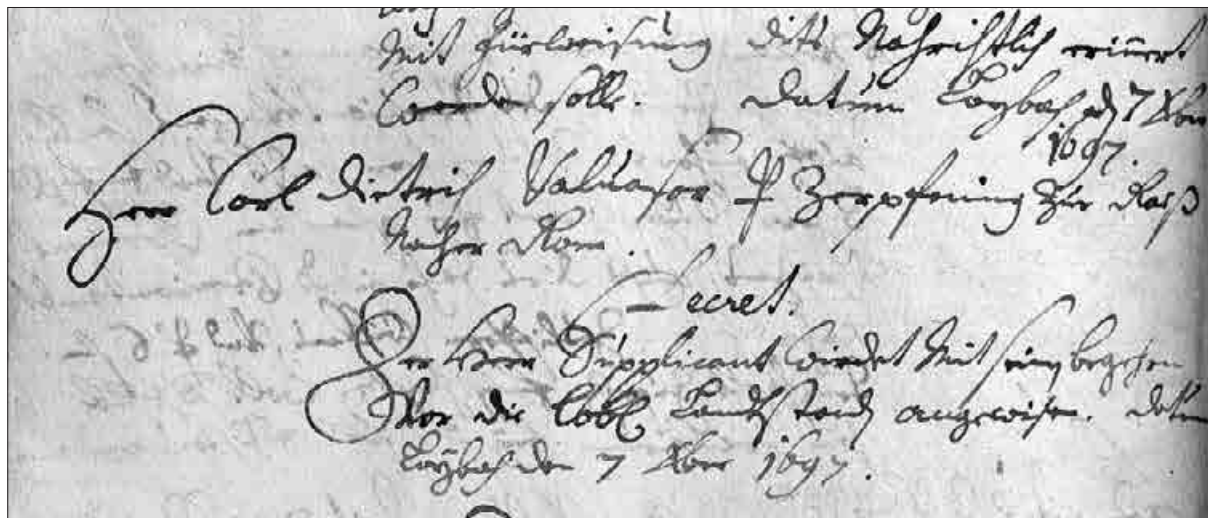 Mit fürweisung dits Nachrichtlich erinnert
werden solle. Datum Laybach den 7 Xber
1697.
Herr Carl Dietrich Valuasor Zerpfening Zur Raiß
Nacher Rom.
Decret.
Der Herr Supplicant wirdet Mit seim begehren
Vor die Löbl Landtständ angewisen. Datum
Laybach den 7 Xber 1697.